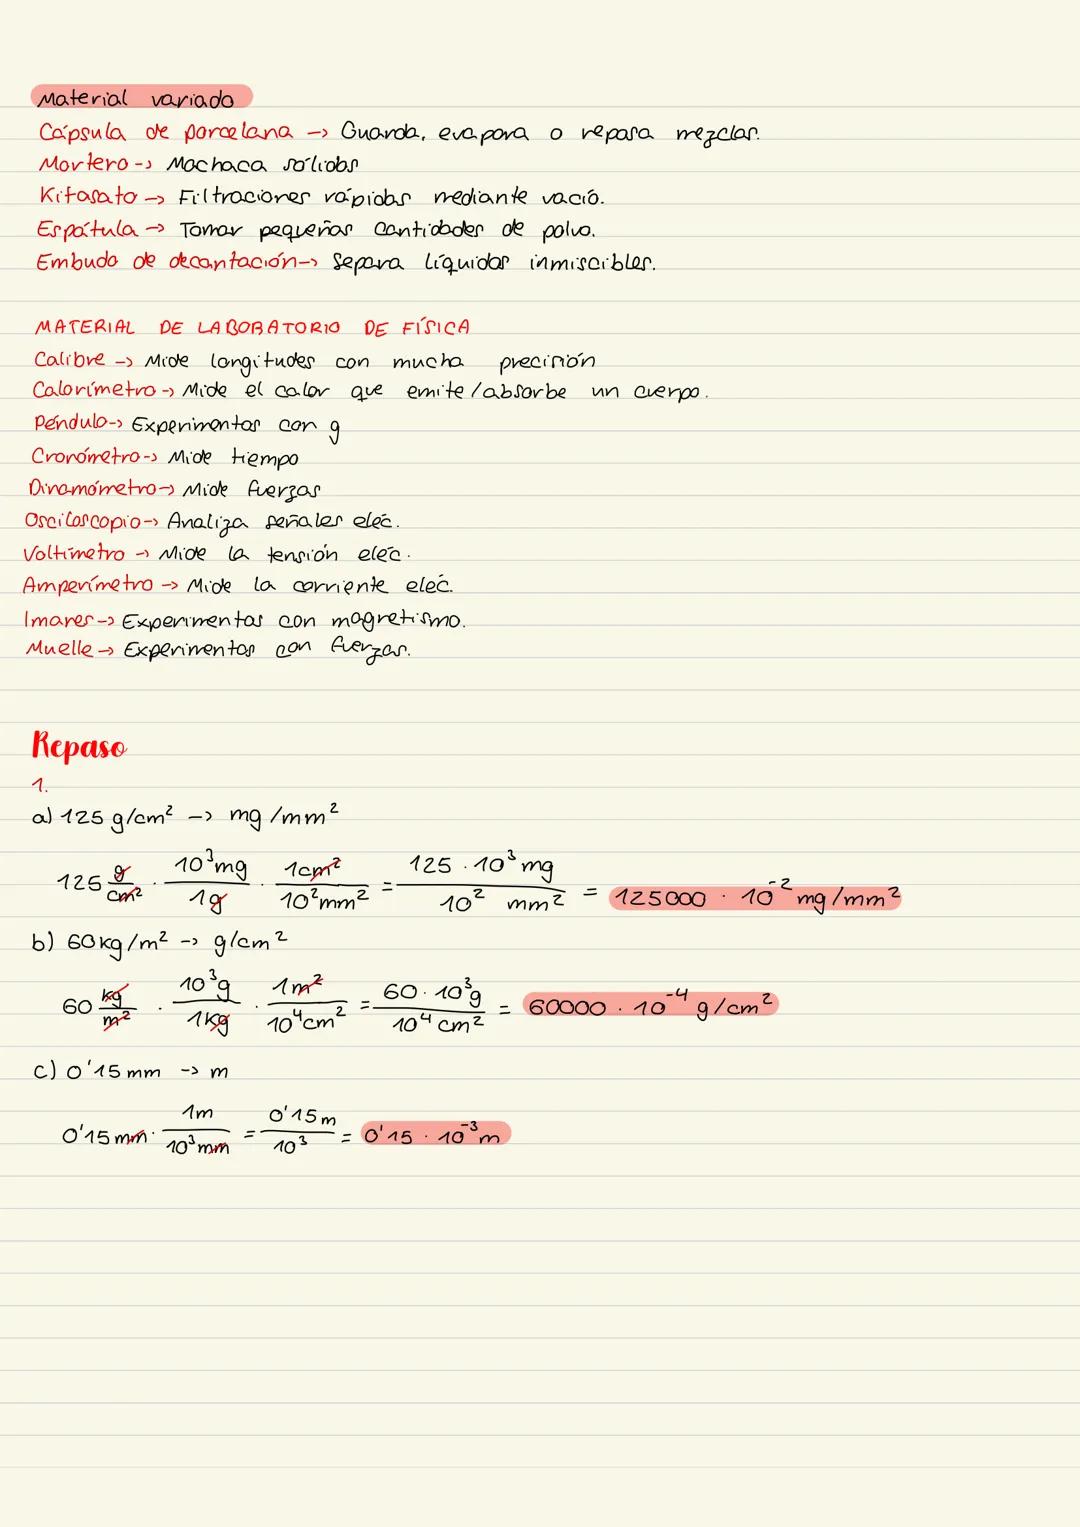 Material variado
Cápsula de porcelana -> Guarda, evapora o repara mezclas.
Mortero -> Machaca sólidos
Kitasato -> Filtraciones rápidas mediante vacío.
Espátula -> Tomar pequeñas cantidades de polvo.
Embudo de decantación -> Separa líquidos inmiscibles.
MATERIAL DE LABORATORIO DE FÍSICA
Calibre -> Mide longitudes con mucha precisión
Calorímetro -> Mide el calor que emite/absorbe un cuerpo.
Péndulo -> Experimentos con g
Cronómetro -> Mide tiempo
Dinamómetro -> Mide fuerzas
Osciloscopio -> Analiza señales eléc.
Voltímetro -> Mide la tensión eléc.
Amperímetro -> Mide la corriente eléc.
Imanes -> Experimentos con magnetismo.
Muelle -> Experimentos con fuerzas.
Repaso
1.
a) 125 g/cm² -> mg/mm²
125 g/cm² · 10³mg/1g · 1cm²/10²mm² = 125 · 10³ mg/10² mm² = 125000 · 10⁻² mg/mm²
b) 60kg/m² -> g/cm²
60 kg/m² · 10³g/1kg · 1m²/10⁴cm² = 60 · 10³g/10⁴cm² = 60000 · 10⁻⁴ g/cm²
c) 0'15 mm -> m
0'15 mm · 1m/10³mm = 0'15m/10³ = 0'15 · 10⁻³ m